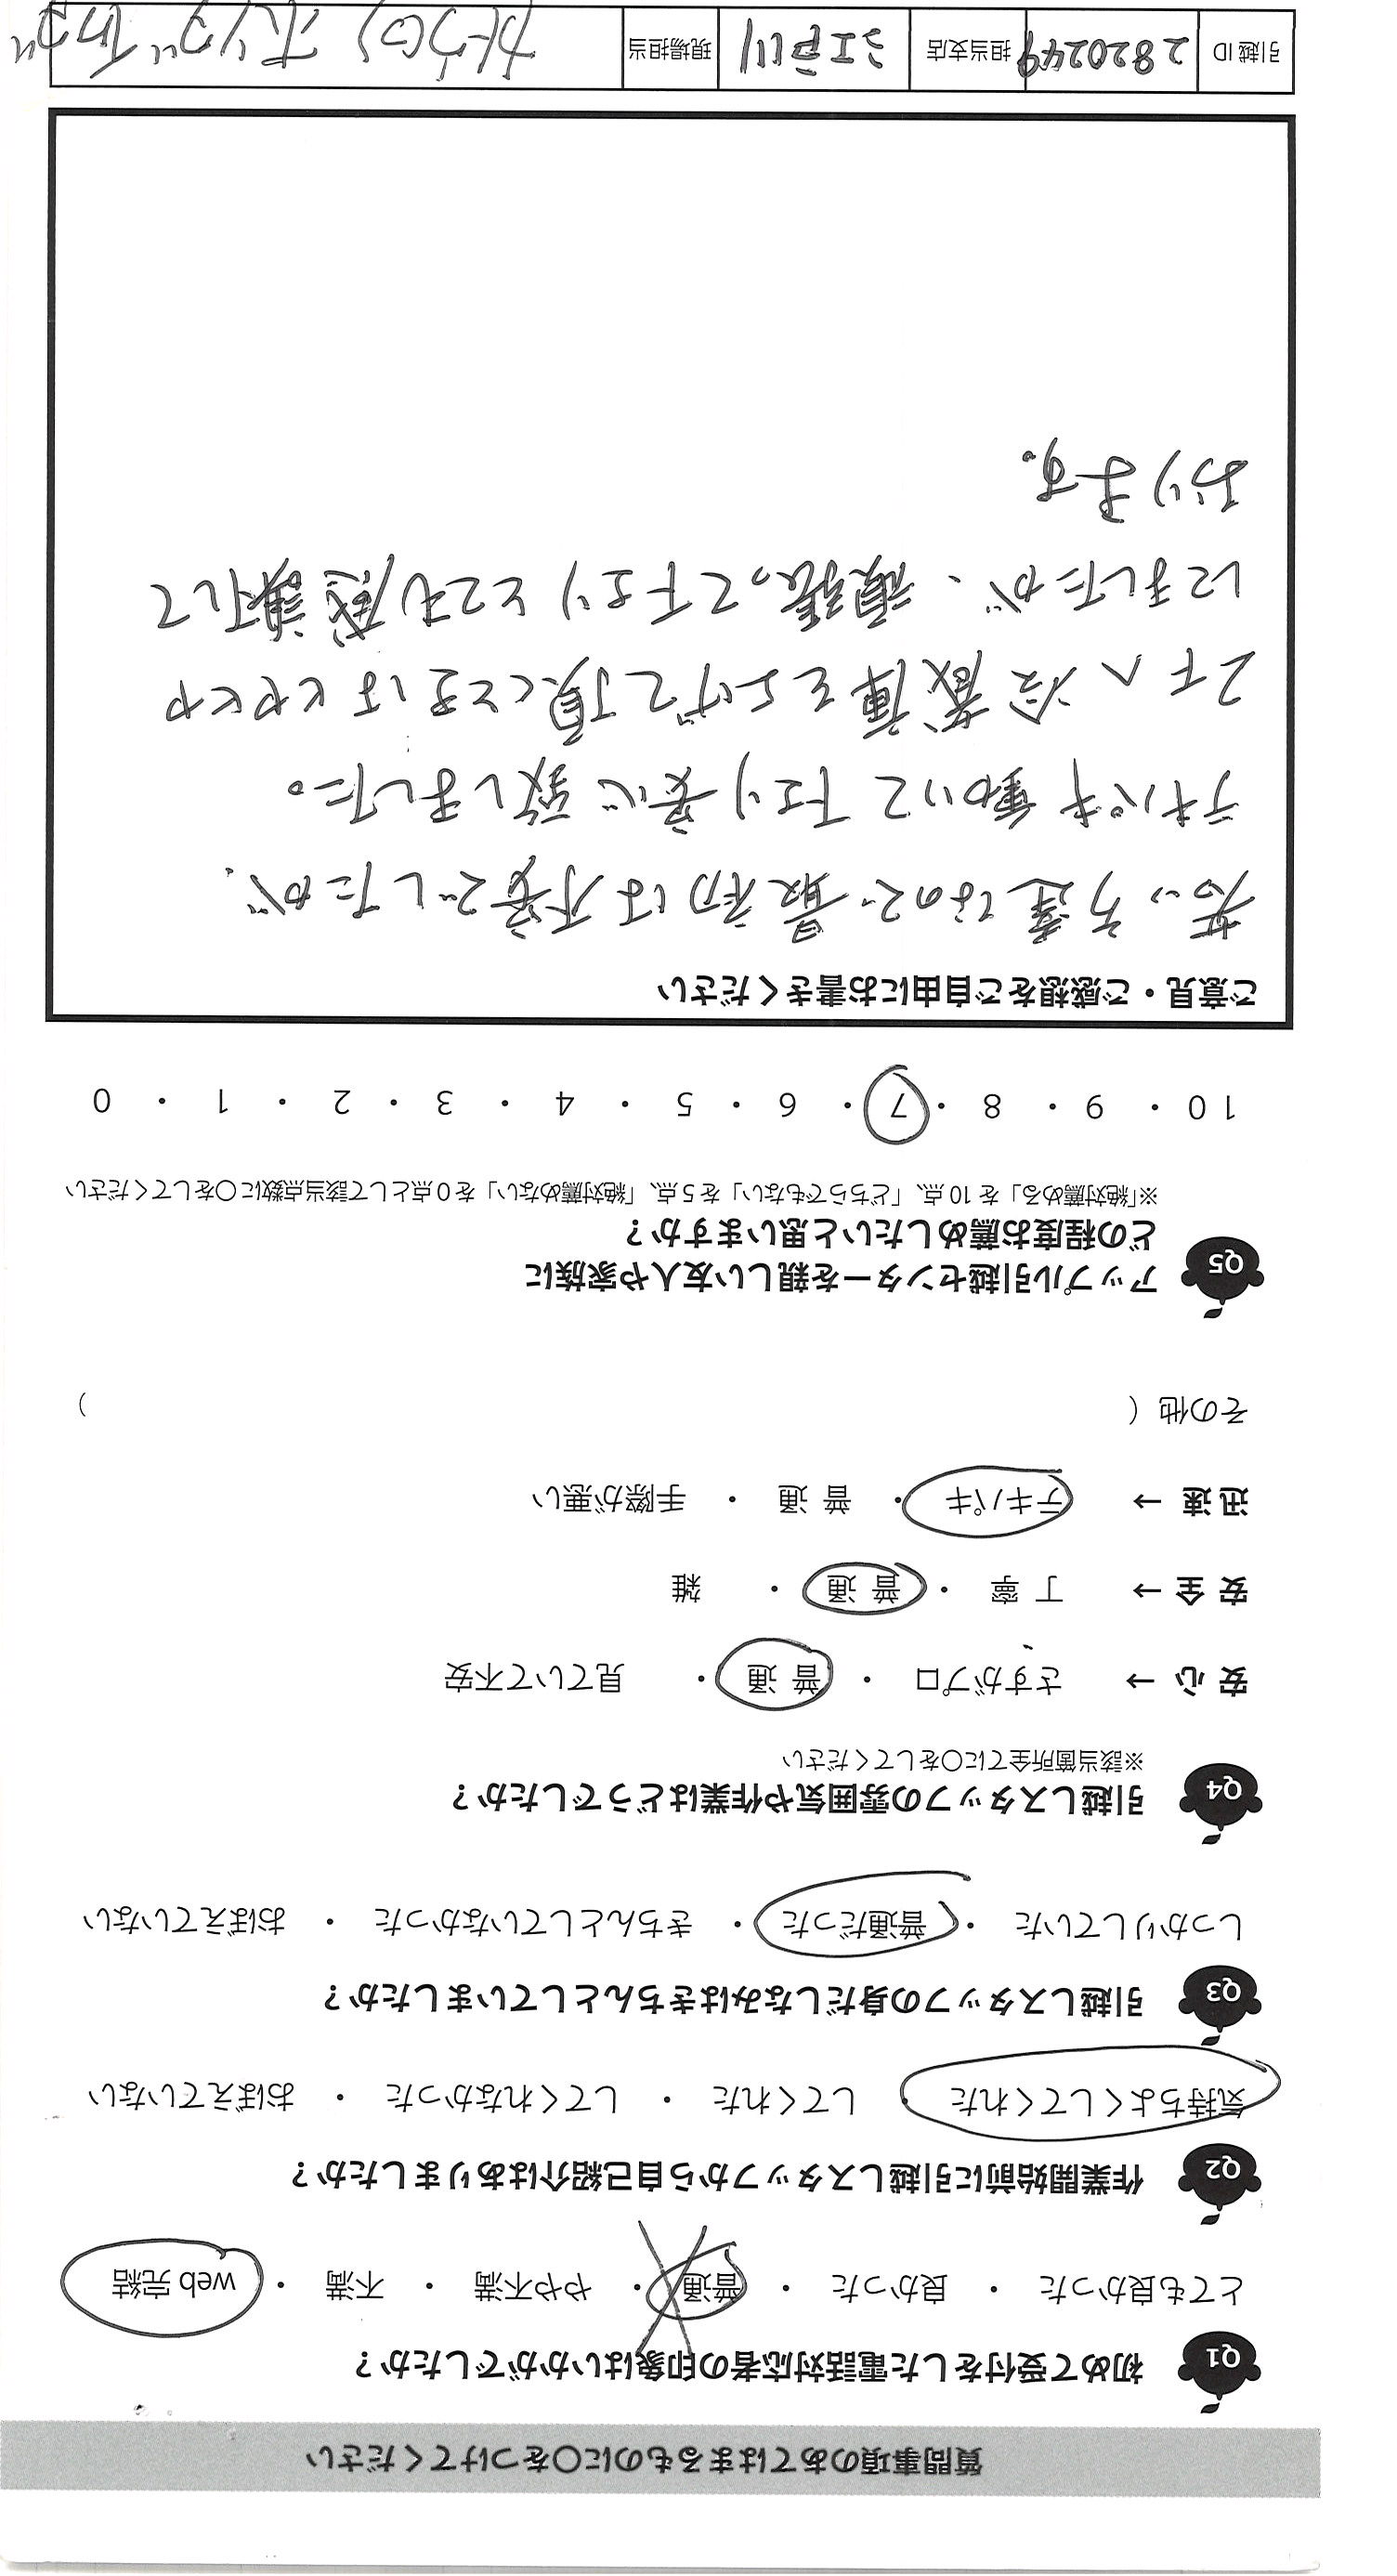 質問事項のあてはまるものに○をつけてください
Q1 初めて受付をした電話対応者の印象はいかがでしたか？
とても良かった ・ 良かった ・ 普通 ・ やや不満 ・ 不満 ・ web 完結
Q2 作業開始前に引越しスタッフから自己紹介はありましたか？
気持ちよくしてくれた ・ してくれた ・ してくれなかった ・ おぼえていない
Q3 引越しスタッフの身だしなみはきちんとしていましたか？
しっかりしていた ・ 普通だった ・ きちんとしていなかった ・ おぼえていない
Q4 引越しスタッフの雰囲気や作業はどうでしたか？
※該当箇所全てに○をしてください
安心 → さすがプロ ・ 普通 ・ 見ていて不安
安全 → 丁寧 ・ 普通 ・ 雑
迅速 → テキパキ ・ 普通 ・ 手際が悪い
その他（ ）
Q5 アップル引越センターを親しい友人や家族に
どの程度お薦めしたいと思いますか？
※「絶対薦める」を 10 点、「どちらでもない」を 5 点、「絶対薦めない」を 0 点として該当点数に○をしてください
10 ・ 9 ・ 8 ・ 7 ・ 6 ・ 5 ・ 4 ・ 3 ・ 2 ・ 1 ・ 0
ご意見・ご感想をご自由にお書きください
若い方達なので最初は不安でしたが、
テキパキ動いて下さり安心致しました。
2Fへ冷蔵庫を上げて頂くときはヒヤヒヤ
しましたが、頑張って下さりとても感謝して
おります。
引越 ID 2820249 担当支店 江戸川 現場担当